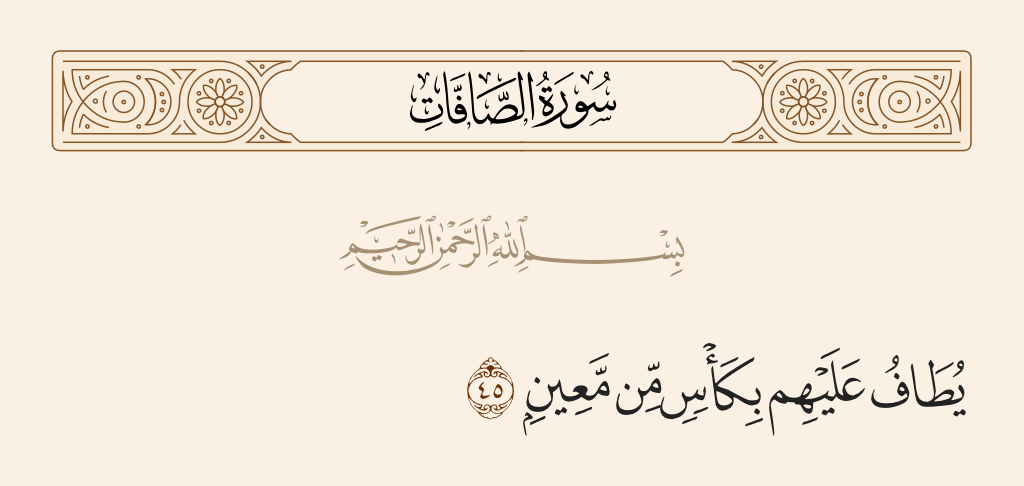 سُورَةُ الصَّافَّاتِ
بِسْمِ ٱللَّهِ ٱلرَّحْمَٰنِ ٱلرَّحِيمِ
يُطَافُ عَلَيْهِم بِكَأْسٍ مِّن مَّعِينٍۭ ٤٥